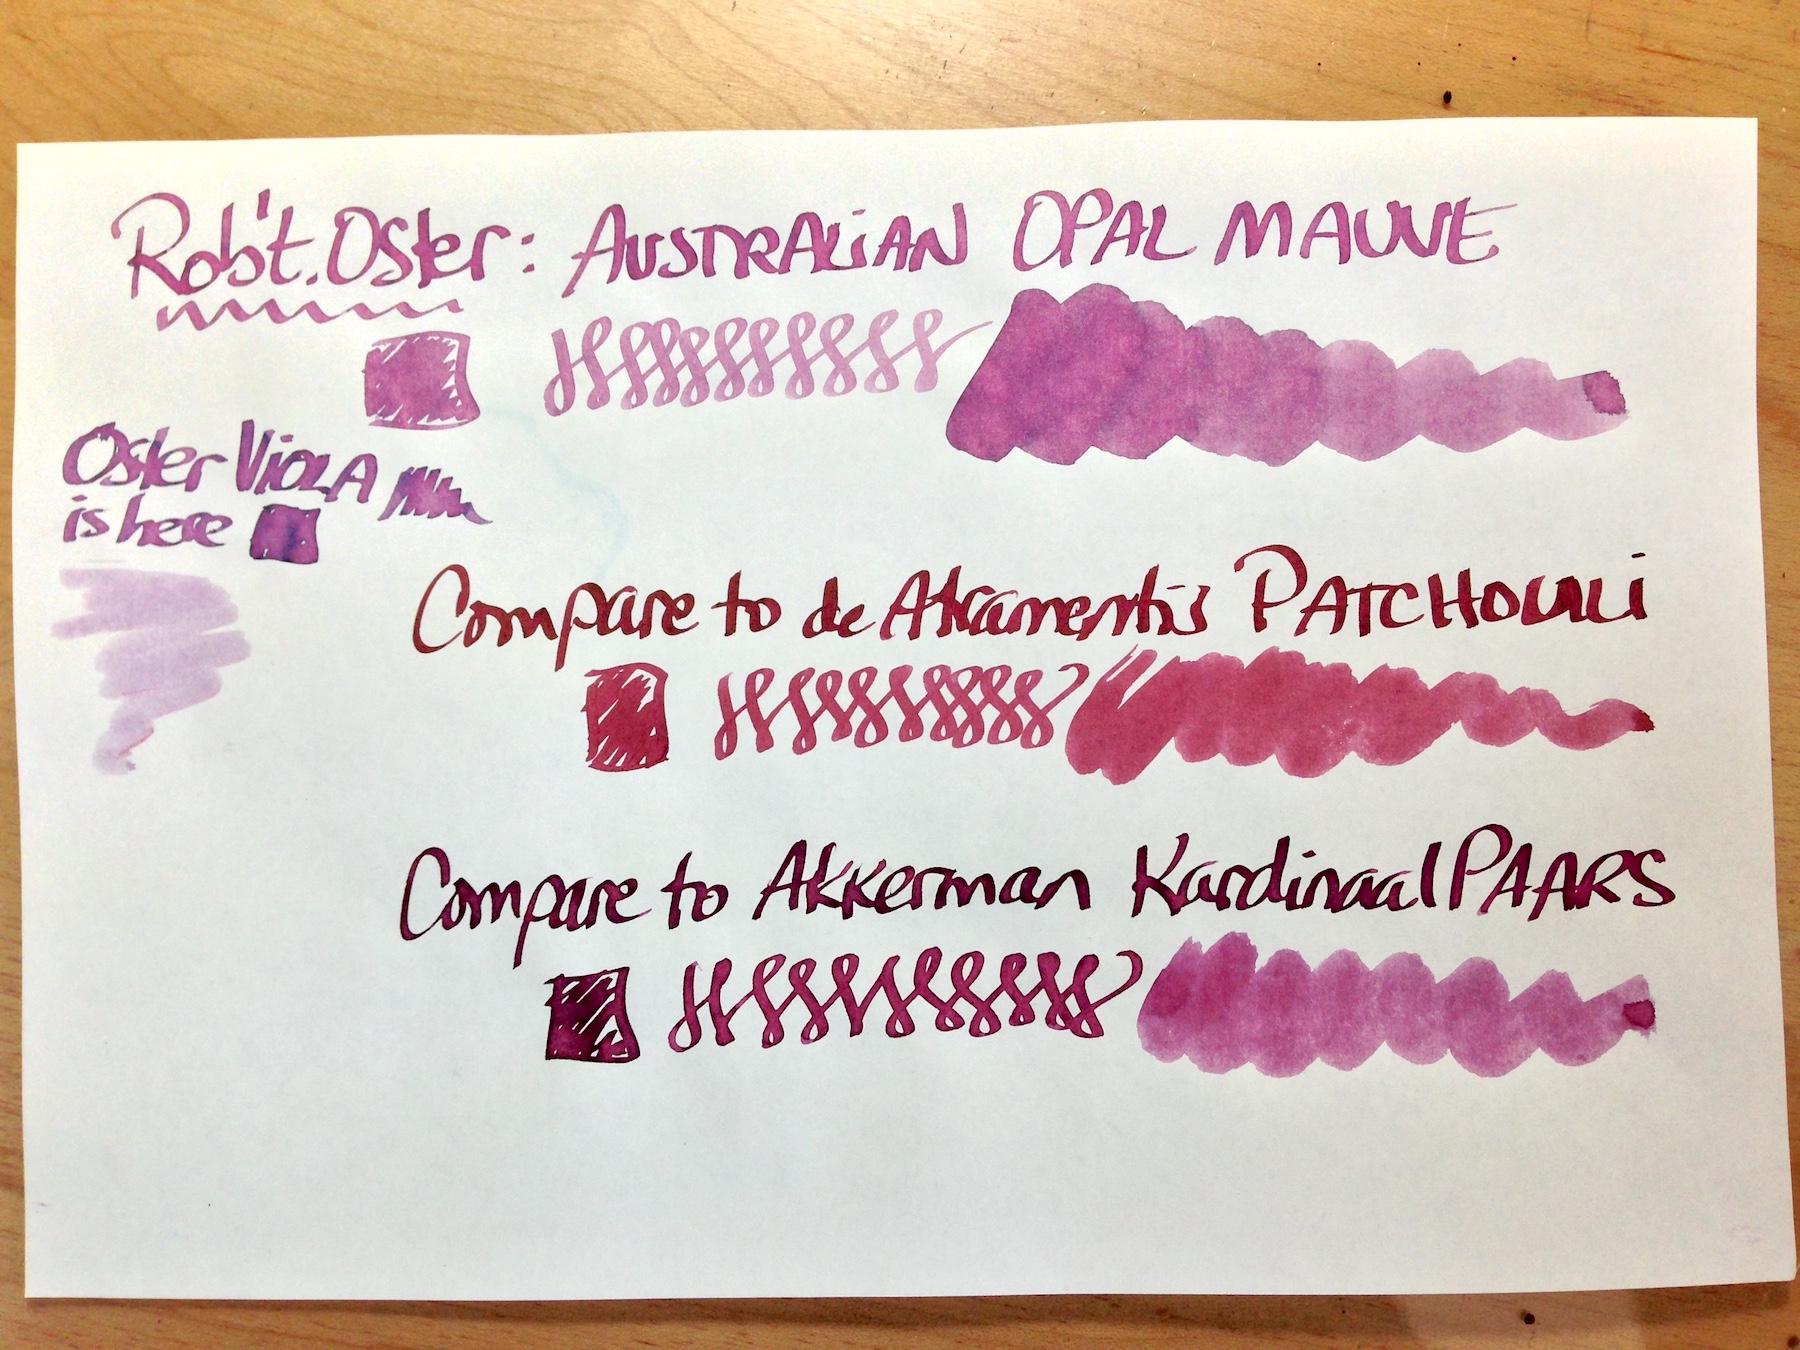 Rob't. Oster: AUSTRALiAN OPAL MAUVE
Oster ViOLA
is here
Compare to de Atramentis PATCHOULi
Compare to Akkerman Kardinaal PAARS